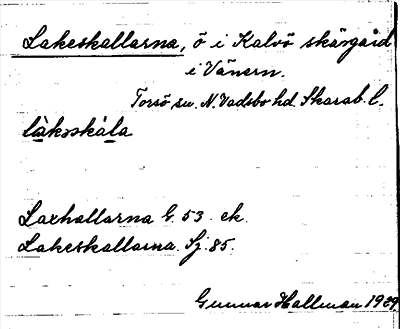 Lakeskallarna, ö i Kalvö skärgård
i Vänern.
Torsö sn. N. Vadsbo hd. Skarab. l.
làkɔskàla
Laxhallarna G. 53. ek.
Lakeskallarna. Sj. 85.
Gunnar Hallman 1929